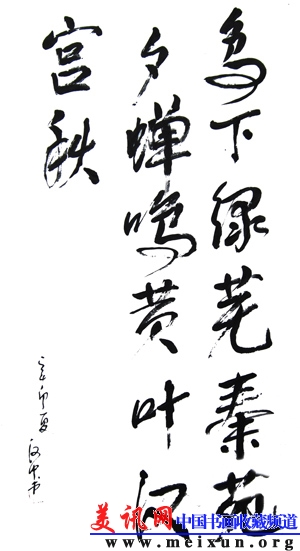 鸟下绿芜秦苑
夕蝉鸣黄叶汉
宫秋
辛卯夏
美讯网
中国书画收藏频道
www.meixun.org